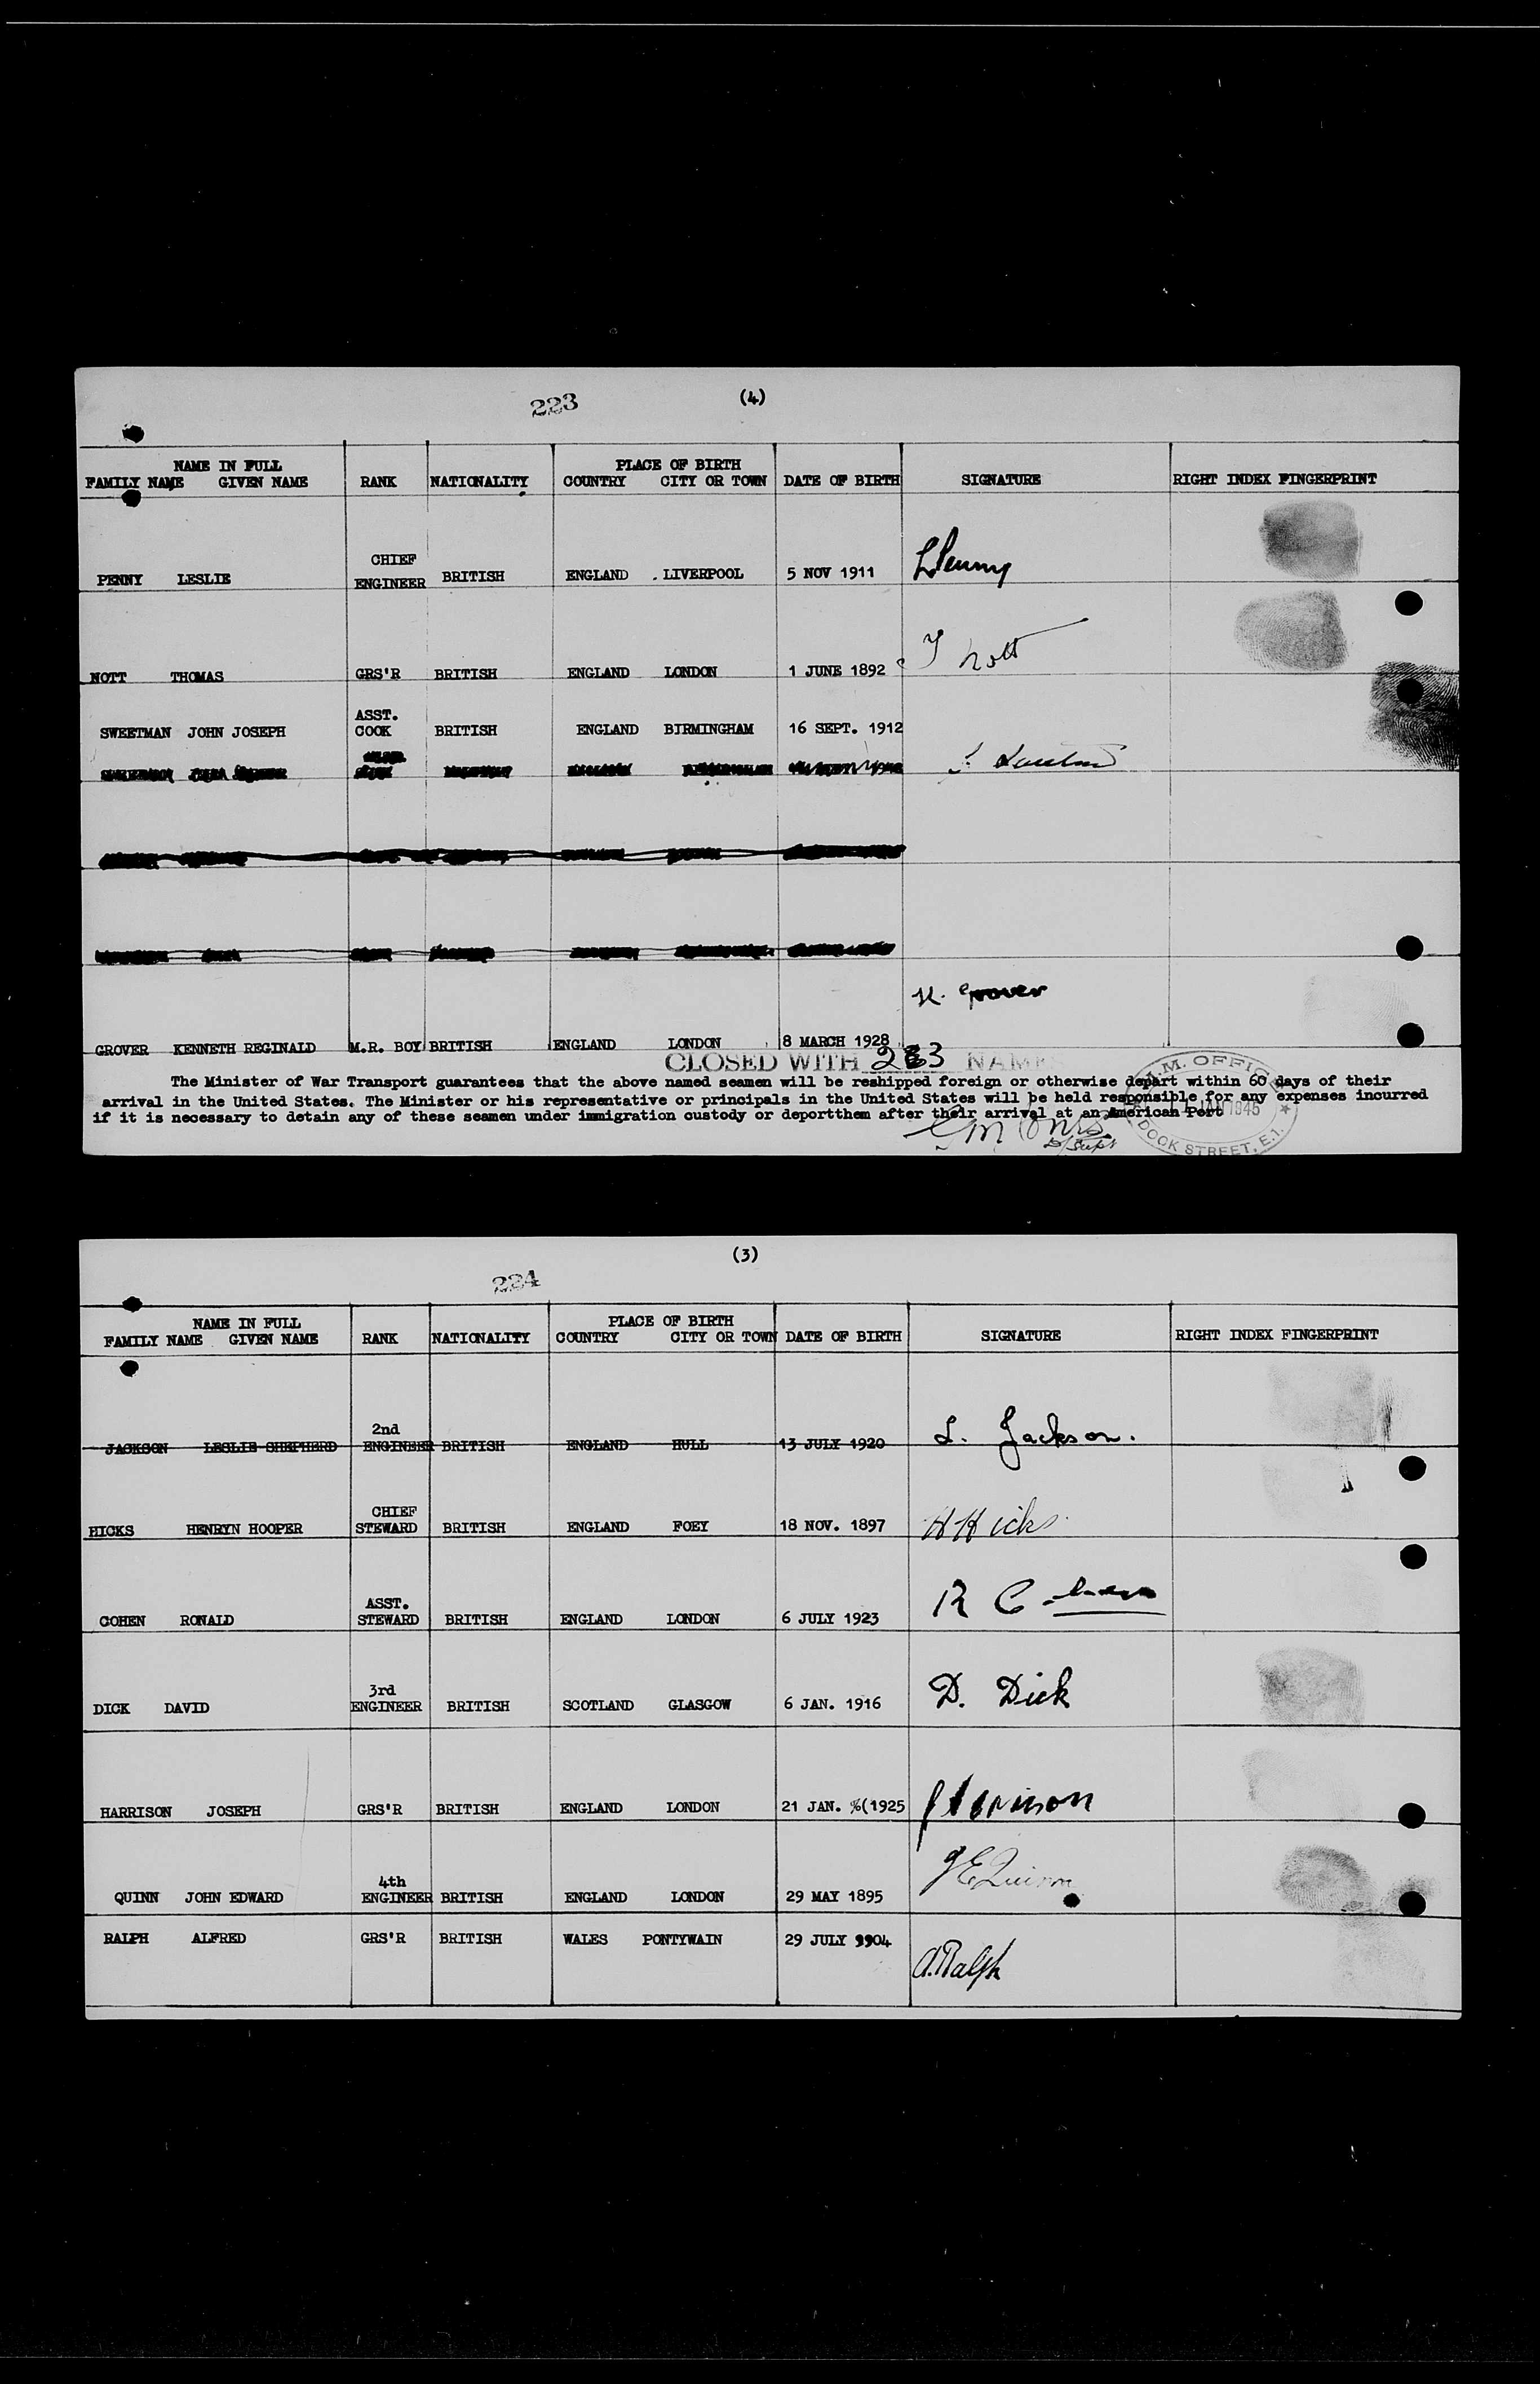 223 (4)
NAME IN FULL PLACE OF BIRTH
FAMILY NAME GIVEN NAME RANK NATIONALITY COUNTRY CITY OR TOWN DATE OF BIRTH SIGNATURE RIGHT INDEX FINGERPRINT
CHIEF
PENNY LESLIE ENGINEER BRITISH ENGLAND . LIVERPOOL 5 NOV 1911 L Penny
NOTT THOMAS GRS'R BRITISH ENGLAND LONDON 1 JUNE 1892 T Nott
ASST.
SWEETMAN JOHN JOSEPH COOK BRITISH ENGLAND BIRMINGHAM 16 SEPT. 1912
K. Grover
GROVER KENNETH REGINALD M.R. BOY BRITISH ENGLAND LONDON 8 MARCH 1928
CLOSED WITH 23 NAMES
The Minister of War Transport guarantees that the above named seamen will be reshipped foreign or otherwise depart within 60 days of their
arrival in the United States. The Minister or his representative or principals in the United States will be held responsible for any expenses incurred
if it is necessary to detain any of these seamen under immigration custody or deportthem after their arrival at an American Port
M.M. OFFICE
JAN 1945
DOCK STREET, E.1.
D/Supt
(3)
224
NAME IN FULL PLACE OF BIRTH
FAMILY NAME GIVEN NAME RANK NATIONALITY COUNTRY CITY OR TOWN DATE OF BIRTH SIGNATURE RIGHT INDEX FINGERPRINT
2nd
JACKSON LESLIE SHEPHERD ENGINEER BRITISH ENGLAND HULL 13 JULY 1920 L. Jackson.
CHIEF
HICKS HENRYN HOOPER STEWARD BRITISH ENGLAND FOEY 18 NOV. 1897 H H icks
ASST.
COHEN RONALD STEWARD BRITISH ENGLAND LONDON 6 JULY 1923 R Cohen
3rd
DICK DAVID ENGINEER BRITISH SCOTLAND GLASGOW 6 JAN. 1916 D. Dick
HARRISON JOSEPH GRS'R BRITISH ENGLAND LONDON 21 JAN. %(1925 J Harrison
4th
QUINN JOHN EDWARD ENGINEER BRITISH ENGLAND LONDON 29 MAY 1895 J E Quinn
RALPH ALFRED GRS'R BRITISH WALES PONTYWAIN 29 JULY 9904 A. Ralph